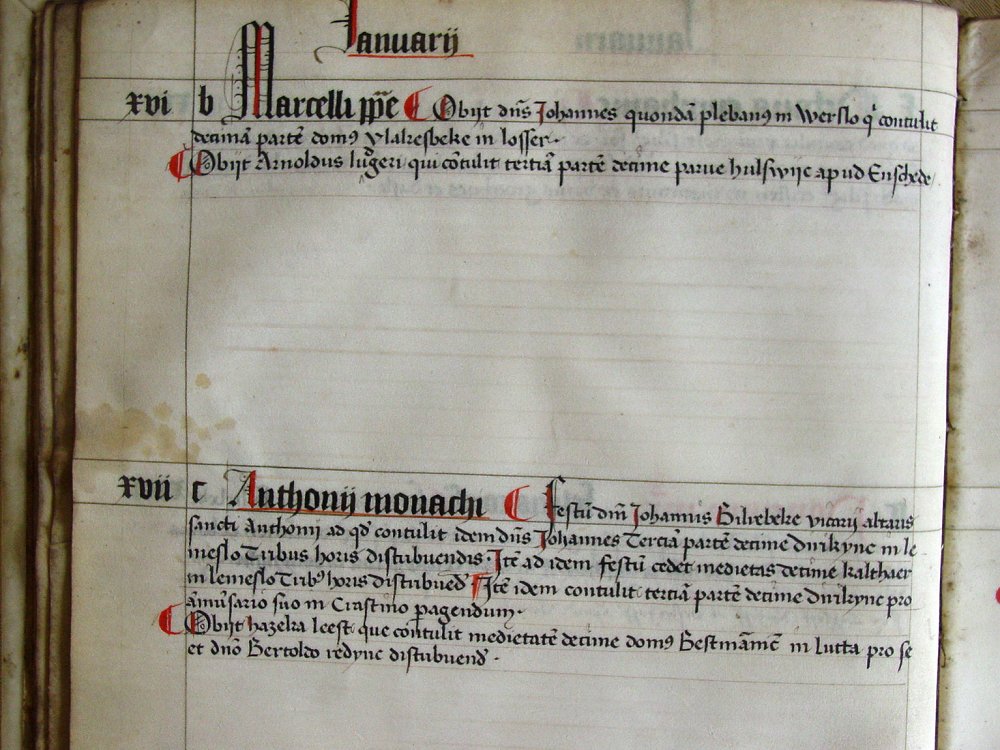 Januarij
xvi b Marcelli pp̄e Obijt dn̄s Johannes quondā plebanꝰ in Werslo qͥ contulit
decimā partē domꝰ vlalresbeke in losser.
Obijt Arnoldus lu̇geri qui cōtulit terciā partē decime parue hulswijc apud Enschede
xvii c Anthonij monachi festū dn̄i Johannis Bilrebeke vicarij altaris
sancti Anthonij ad qd̄ contulit idem dn̄s Johannes Terciā partē decime dnikync in le-
meslo Tribus horis distribuendis. Itē ad idem festū cedet medietas decime kalthaer
in lemeslo Tribꝰ horis distribuend̄ Itē idem contulit terciā partē decime dnikync pro
āniūsario suo in Crastino pagendum.
Obijt hazeka leest que contulit medietatē decime domꝰ Bestmāinc in lutta pro se
et dn̄o Bertoldo redync distribuend̄.